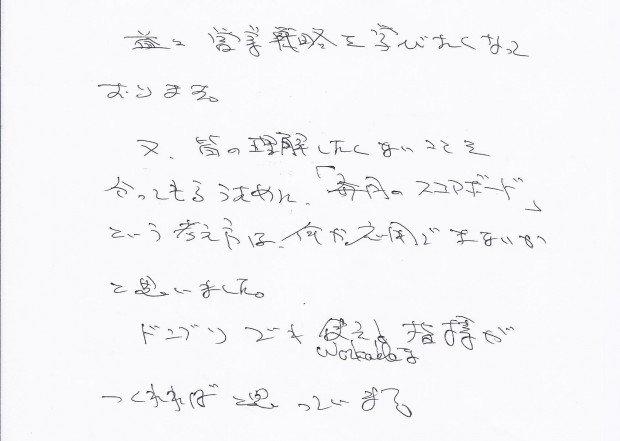 益々 営業戦略を学びたくなって
おります。
又、皆の理解したくないことを
分ってもらうために、「毎月のスコアボード」
という考え方は、何か応用できないか
と思いました。
ドンブリでも 使える 指標が
workableな
つくれればと思っています